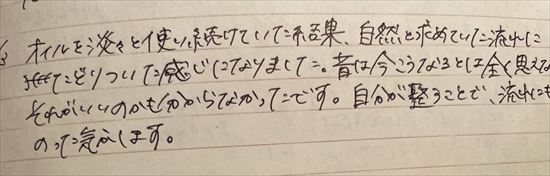 オイルを淡々と使い続けていた結果、自然と求めていた流れに
たどりついた感じになりました。昔は今こうなるとは全く思えな
それがいいのかも分からなかったです。自分が整うことで、流れにも
のった気がします。